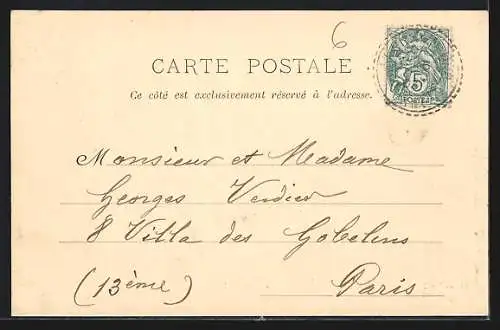 6
CARTE POSTALE
Ce côté est exclusivement réservé à l'adresse.
5
POSTES
Monsieur et Madame
Georges Verdier
8 Villa des Gobelins
(13ème) Paris